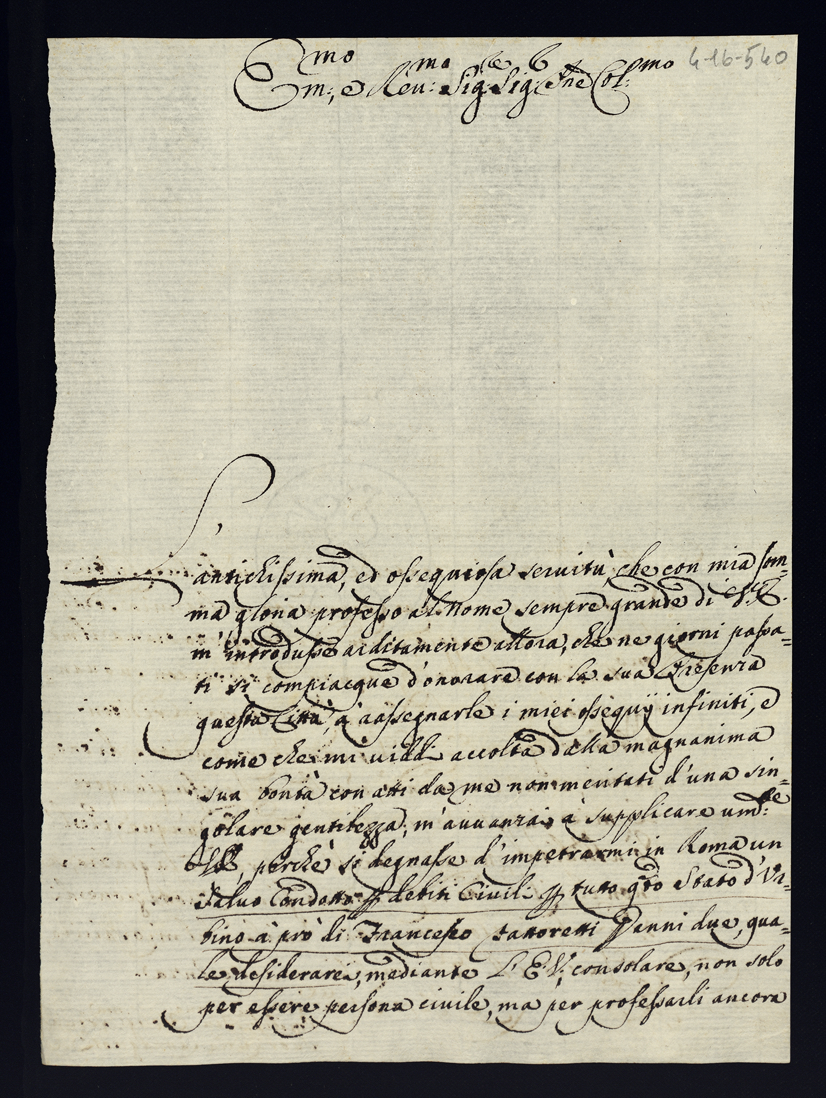 4-16-540
Em:mo, e Reu:mo Sig:re Sig:re Pne Col:mo
L'
antichissima, ed ossequiosa seruitù, che con mia som-
ma gloria professo al Nome sempre grande di V:E:
m'introdusse arditamente allora, che ne giorni passa-
ti si compiacque d'onorare con la sua Presenza
questa Città, à rassegnarle i miei ossequÿ infiniti, e
come che mi viddi accolta dalla magnanima
sua bontà con atti da me non mentati d'una sin-
golare gentilezza, m'auuanzai à supplicare um:te
perche si degnasse d'impetrarmi in Roma un
Saluo Condotto p debiti Ciuili p tutto q̃to Stato d'Ur-
bino à prò di Francesco Fattoretti p anni due, qua-
le desiderarei, mediante l'E.V. consolare, non solo
per essere persona ciuile, ma per professarli ancora